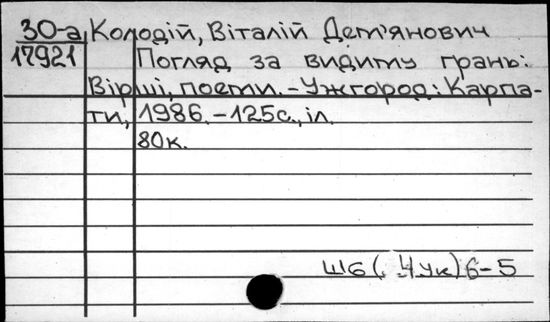 30-а Колодій, Віталій Дем'янович
17921 Погляд за видиму грань:
Вірші, поеми. - Ужгород: Карпа-
ти, 1986. - 125с., іл.
80к.
Ш6(. 4Ук)6-5